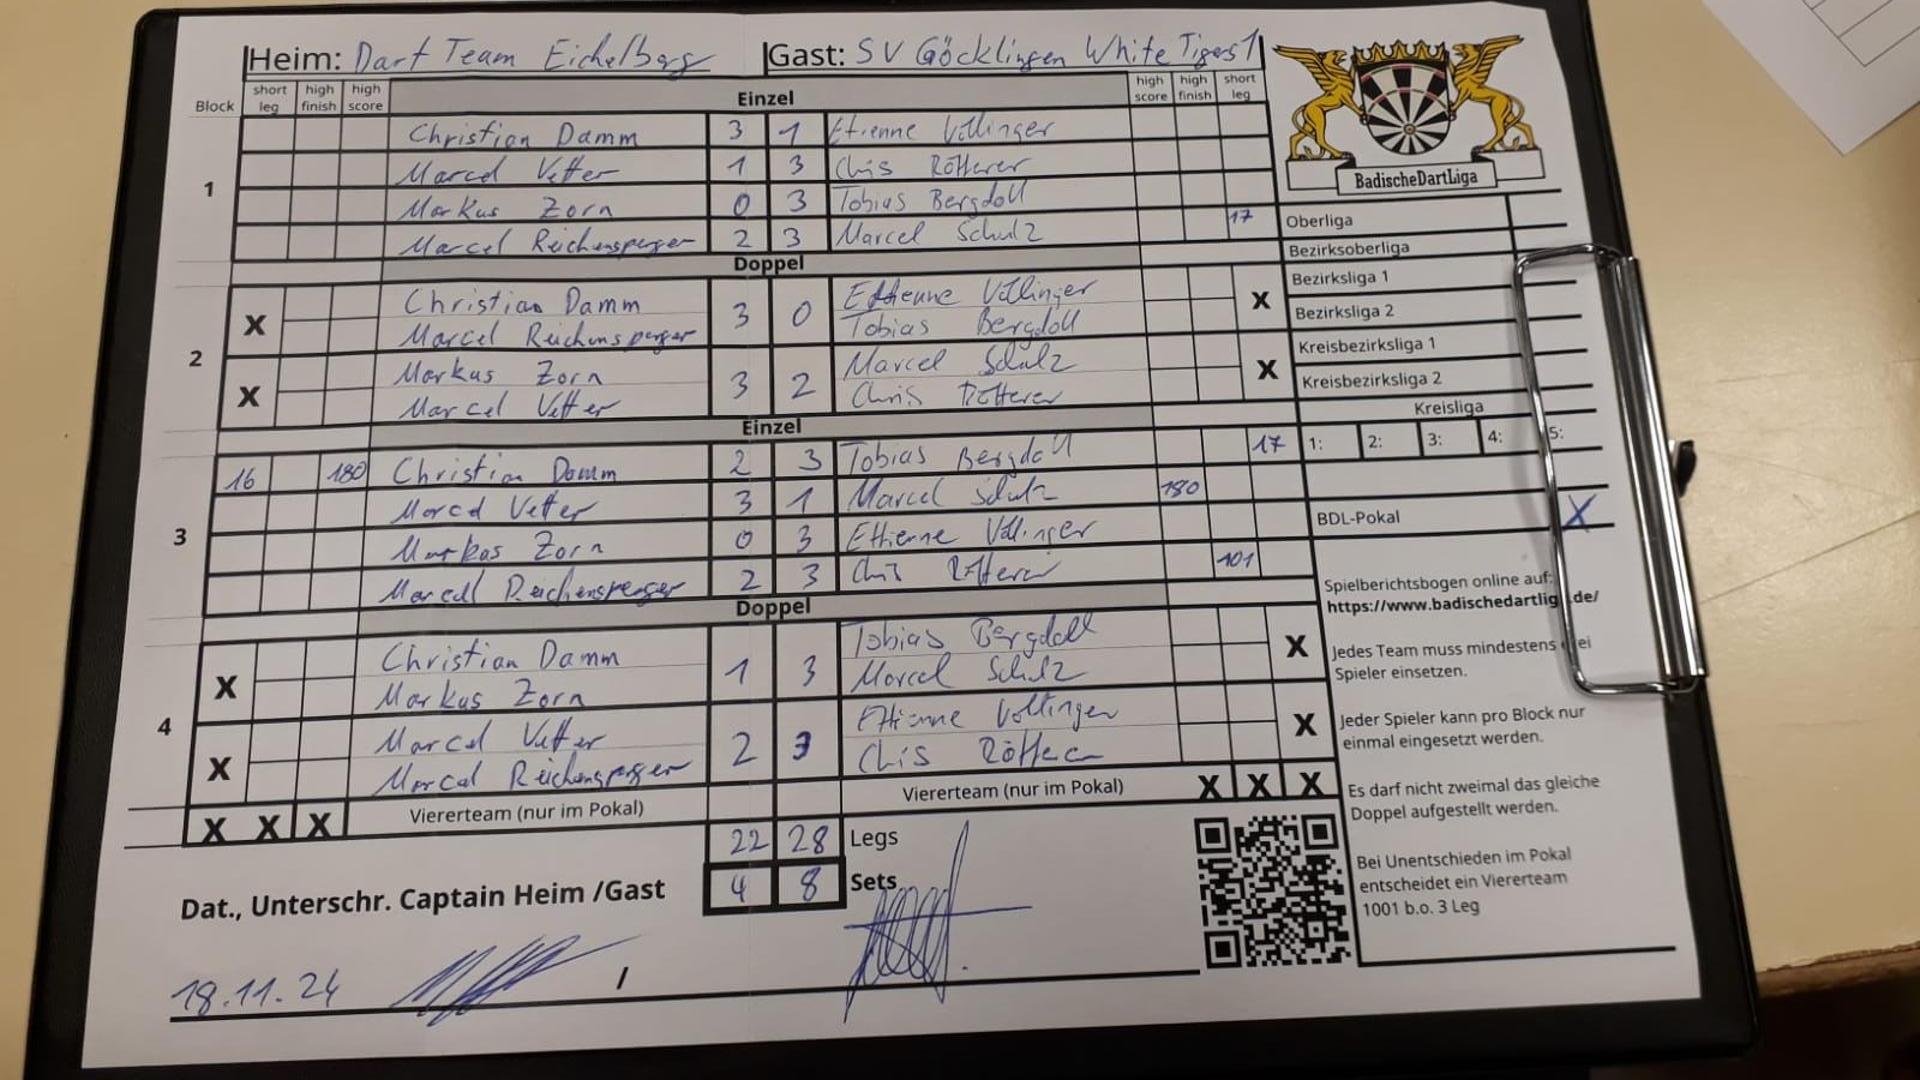 Heim: Dart Team Eichelberg Gast: SV Göcklingen White Tigers 1
Block short leg high finish high score Einzel high score high finish short leg
1
Christian Damm 3 1 Etienne Vollinger
Marcel Vetter 1 3 Chis Rötterer
Markus Zorn 0 3 Tobias Bergdoll
Marcel Reichensperger 2 3 Marcel Schulz 17
Doppel
2
X Christian Damm 3 0 Ettienne Vollinger X
Marcel Reichensperger Tobias Bergdoll
X Markus Zorn 3 2 Marcel Schulz X
Marcel Vetter Chris Rötterer
Einzel
3
16 180 Christian Damm 2 3 Tobias Bergdoll 17
Marcel Vetter 3 1 Marcel Schulz 180
Markus Zorn 0 3 Ettienne Vollinger
Marcel Reichensperger 2 3 Chis Rötterer 101
Doppel
4
X Christian Damm 1 3 Tobias Bergdoll X
Markus Zorn Marcel Schulz
X Marcel Vetter 2 3 Ettienne Vollinger X
Marcel Reichensperger Chis Rötterer
X X X Viererteam (nur im Pokal) Viererteam (nur im Pokal) X X X
22 28 Legs
4 8 Sets
Dat., Unterschr. Captain Heim /Gast
18.11.24 /
BadischeDartLiga
Oberliga
Bezirksoberliga
Bezirksliga 1
Bezirksliga 2
Kreisbezirksliga 1
Kreisbezirksliga 2
Kreisliga
1: 2: 3: 4: 5:
BDL-Pokal X
Spielberichtsbogen online auf:
https://www.badischedartlig .de/
Jedes Team muss mindestens ei
Spieler einsetzen.
Jeder Spieler kann pro Block nur
einmal eingesetzt werden.
Es darf nicht zweimal das gleiche
Doppel aufgestellt werden.
Bei Unentschieden im Pokal
entscheidet ein Viererteam
1001 b.o. 3 Leg